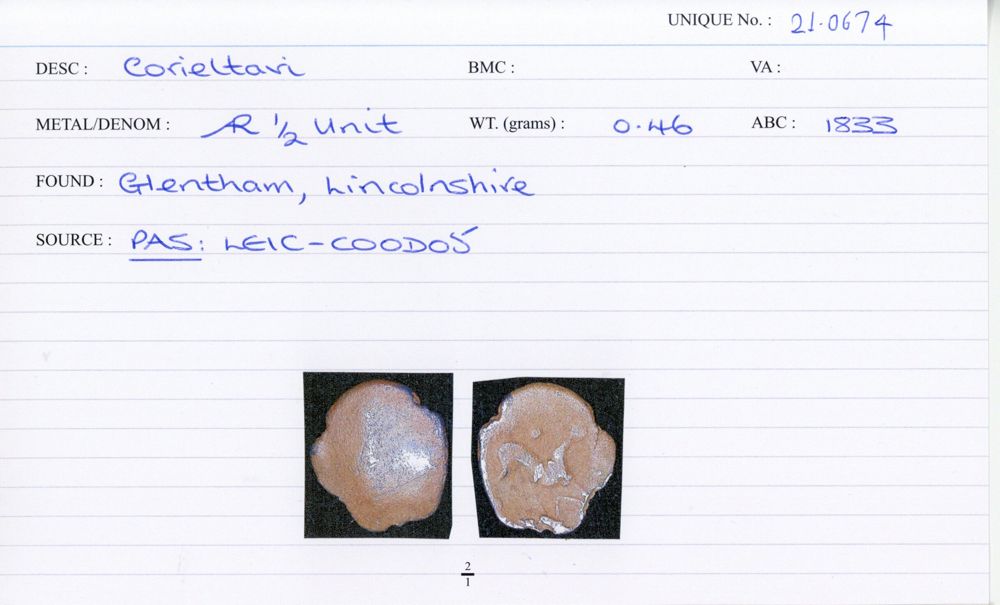 UNIQUE No. : 21.0674
DESC : Corieltavi BMC : VA :
METAL/DENOM : AR 1/2 Unit WT. (grams) : 0.46 ABC : 1833
FOUND : Glentham, Lincolnshire
SOURCE : PAS: LEIC-C00D05
2/1